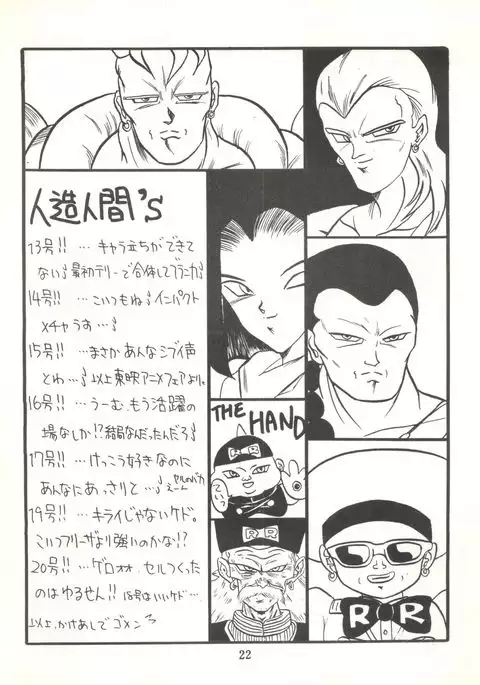 人造人間's
13号!! …キャラ立ちができて
ない 最初テリーで合体して
14号!! …こいつもね インパクト
メチャうす…
15号!! …まさかあんなシブイ声
とわ… 以上東映アニメフェアより。
16号!! …うーむ、もう活躍の
場なしか!?結局なんだったんだろ
17号!! …けっこう好きなのに
あんなにあっさりと… セルのバカ
19号!! …キライじゃないケド。
こいつフリーザより強いのかな!?
20号!! …ゲロォォ、セルつくった
のはゆるせん!! 18号はいいケド…
以上、かけあしでゴメン
THE HAND
R R
R R
R R
22